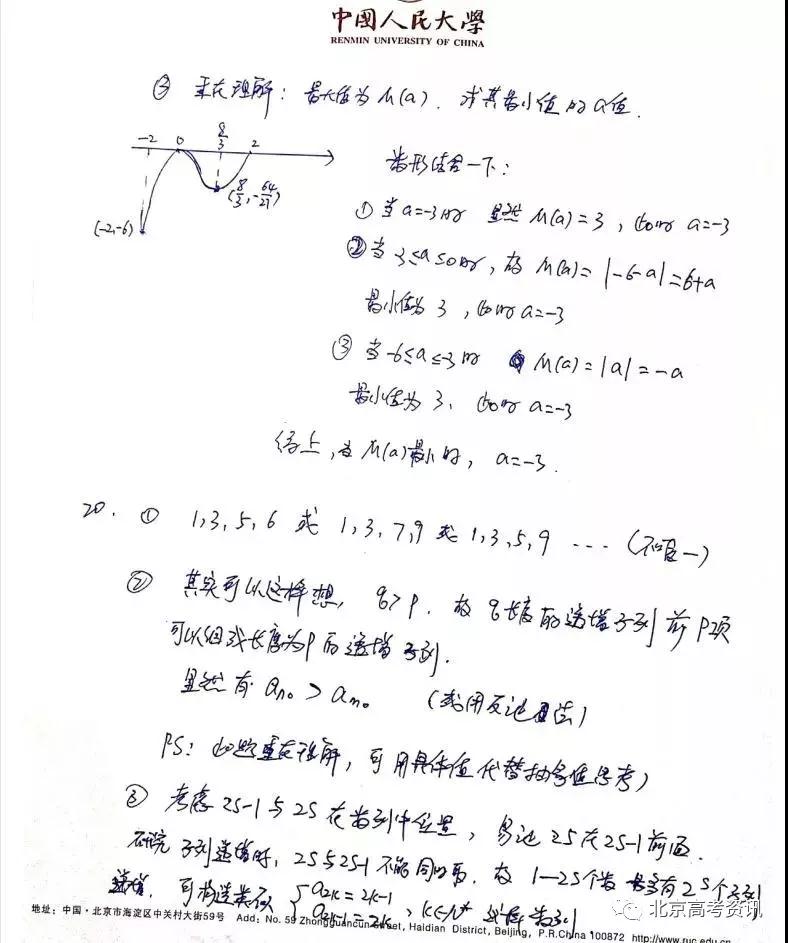 中国人民大学
RENMIN UNIVERSITY OF CHINA
③ 重在理解：最大值为M(a)．求其最小值的a值．
-2 0 8/3 2
(8/3, -64/27)
(-2,-6)
数形结合一下：
① 当a=-3时 显然 M(a)=3，此时 a=-3
②当 3≤a≤0时，故 M(a)=|-6-a|=6+a
最小值为 3，此时a=-3
③ 当-6≤a≤-3时 M(a)=|a|=-a
最小值为 3．此时 a=-3
综上，当 M(a)最小时，a=-3．
20． ① 1,3,5,6 或 1,3,7,9 或 1,3,5,9 …（不唯一）
② 其实可以这样想，q>p．故 q长度的递增子列前p项
可以组成长度为p的递增子列．
显然有 an₀>am₀ （或用反证法）
PS：此题重在理解，可用具体值代替抽象值思考）
③ 考虑 2S-1与2S在数列中位置，易证 2S在2S-1前面．
研究子列递增时，2S与2S-1不能同时取．故 1—2S个数 有2^S个子列
递增．可构造类似 { a2k=2k-1 a2k-1=2k ，k∈N* 数列
地址：中国·北京市海淀区中关村大街59号 Add: No. 59 Zhongguancun Street, Haidian District, Beijing, P.R.China 100872 http://www.ruc.edu.cn
北京高考资讯